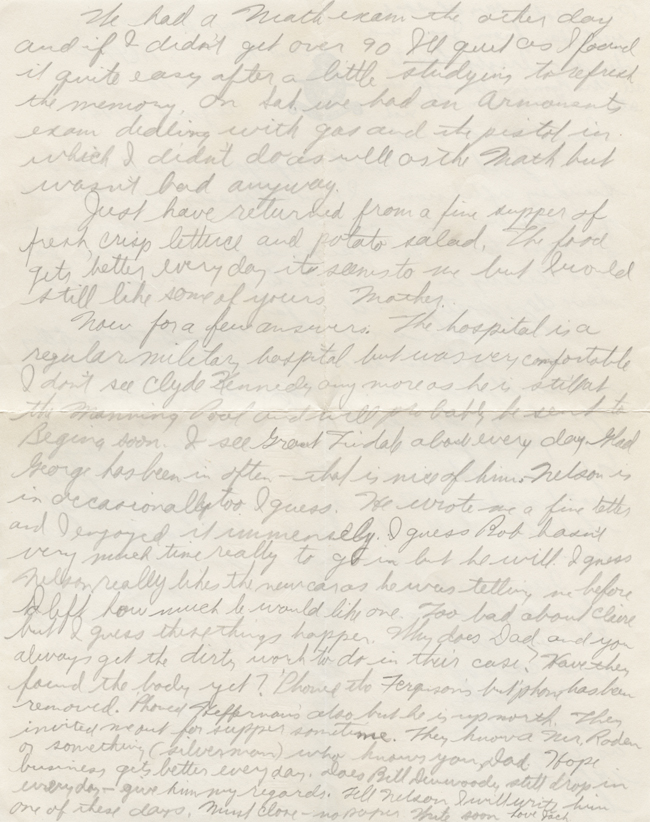 We had a Math exam the other day
and if I didn't get over 90 I'll quit as I found
it quite easy after a little studying to refresh
the memory. On Sat. we had an Armaments
exam dealing with gas and the pistol in
which I didn't do as well as the Math but
wasn't bad anyway.
Just have returned from a fine supper of
fresh, crisp lettuce and potato salad. The food
gets better every day it seems to me but I would
still like some of yours Mother.
Now for a few answers. The hospital is a
regular military hospital but was very comfortable
I don't see Clyde Kennedy any more as he is still at
the Manning Pool and will probably be sent to
Regina soon. I see Grant Tisdale about every day. Glad
George has been in often - that is nice of him. Nelson is
in occasionally too I guess. He wrote me a fine letter
and I enjoyed it immensely. I guess Rob hasn't
very much time really to go in but he will. I guess
Nelson really likes the new car as he was telling me before
I left how much he would like one. Too bad about Claire
but I guess these things happen. Why does Dad and you
always get the dirty work to do in their case? Have they
found the body yet? Phoned the Ferguson's but phone has been
removed. Phoned Heffernan's also but he is up north. They
invited me out for supper sometime. They know a Mr. Roden
or something (silverman) who knows you, Dad. Hope
business gets better every day. Does Bill Dinwoody still drop in
every day - give him my regards. Tell Nelson I will write him
one of these days. Must close - no paper. Write soon Love Jack